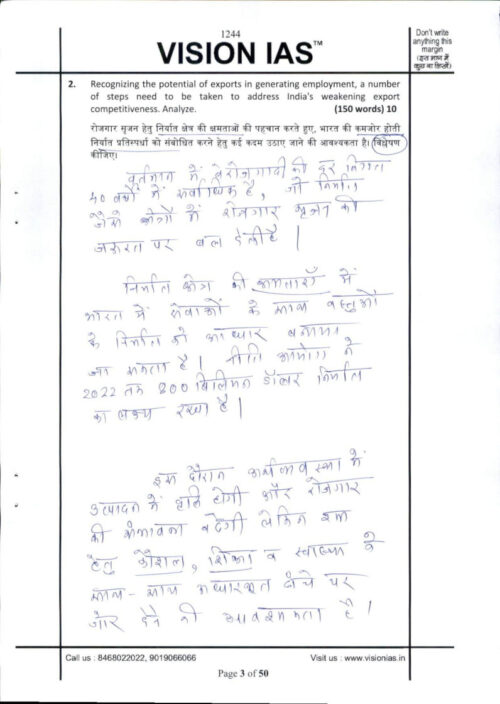 1244
VISION IAS™
Don't write
anything this
margin
(इस भाग में
कुछ ना लिखें)
2. Recognizing the potential of exports in generating employment, a number
of steps need to be taken to address India's weakening export
competitiveness. Analyze. (150 words) 10
रोजगार सृजन हेतु निर्यात क्षेत्र की क्षमताओं की पहचान करते हुए, भारत की कमजोर होती
निर्यात प्रतिस्पर्धा को संबोधित करने हेतु कई कदम उठाए जाने की आवश्यकता है। विश्लेषण
कीजिए।
वर्तमान में बेरोजगारी की दर विगत
40 वर्षों में सर्वाधिक है, जो निर्यात
जैसे क्षेत्रों में रोजगार सृजन की
जरूरत पर बल देती है।
निर्यात क्षेत्र की क्षमताएँ में
भारत में सेवाओं के साथ वस्तुओं
के निर्यात को आधार बनाया
जा सकता है। नीति आयोग ने
2022 तक 800 बिलियन डॉलर निर्यात
का लक्ष्य रखा है।
इस दौरान अर्थव्यवस्था में
उत्पादन में वृद्धि होगी और रोजगार
की संभावना बढ़ेगी लेकिन इस
हेतु कौशल, शिक्षा व स्वास्थ्य के
साथ-साथ आधारभूत ढांचे पर
जोर देने की आवश्यकता है।
Call us : 8468022022, 9019066066
Visit us : www.visionias.in
Page 3 of 50